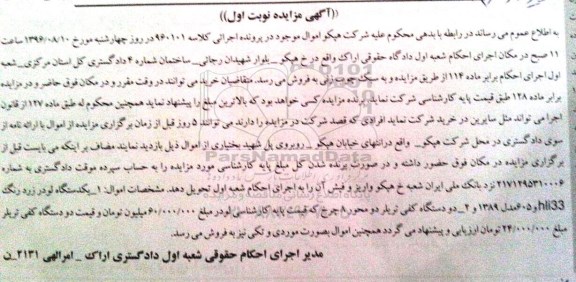 ((آگهی مزایده نوبت اول))
به اطلاع عموم می رساند در رابطه با بدهی محکوم علیه شرکت هپکو اموال موجود در پرونده اجرائی کلاسه ۹۶۰۱۰۱ در روز چهارشنبه مورخ ۱۳۹۶/۰۸/۱۰ ساعت
۱۱ صبح در مکان اجرای احکام شعبه اول دادگاه حقوقی اراک واقع در خ هپکو _ بلوار شهیدان رجائی_ ساختمان شماره ۴ دادگستری کل استان مرکزی_ شعبه
اول اجرای احکام برابر ماده ۱۱۴ از طریق مزایده و به سیک جهت دولتی به فروش می رسد. متقاضیان خرید می توانند در وقت مقرر و در مکان فوق حاضر و در مزایده
برابر ماده ۱۲۸ طبق قیمت پایه کارشناسی شرکت نمایند برنده مزایده کسی خواهد بود که بالاترین مبلغ را پیشنهاد نماید همچنین محکوم له طبق ماده ۱۲۷ از قانون
اجرا می تواند مثل سایرین در خرید شرکت نماید افرادی که قصد شرکت در مزایده را دارند می توانند ۵ روز قبل از زمان برگزاری مزایده از اموال با ارائه نامه از
سوی دادگستری در محل شرکت هپکو_ واقع در انتهای خیابان هپکو _ روبروی پل شهید بختیاری از اموال ذیل بازدید نمایند مضاف بر اینکه می بایست قبل از
برگزاری مزایده در مکان فوق حضور داشته و در صورت برنده شدن کل مبلغ پایه کارشناسی مورد مزایده را به حساب سپرده موقت دادگستری به شماره
۲۱۷۱۲۹۵۳۱۰۰۰۶ نزد بانک ملی ایران شعبه خ هپکو واریز و فیش آن را به اجرای احکام شعبه اول تحویل دهد. مشخصات اموال: ۱_یکدستگاه لودر زرد رنگ
hli33 و ۶۰۵مدل ۱۳۸۹ و ۲_ دو دستگاه کفی تریلر دو محور ۸ چرخ که قیمت پایه کارشناسی لودر مبلغ ۶۰/۰۰۰/۰۰۰ میلیون تومان و قیمت دو دستگاه کفی تریلر
مبلغ ۲۴/۰۰۰/۰۰۰ تومان ارزیابی و پیشنهاد می گردد همچنین اموال بصورت موردی و تکی نیز به فروش می رسد.
مدیر اجرای احکام حقوقی شعبه اول دادگستری اراک _ امرالهی ۲۱۳۱_ن